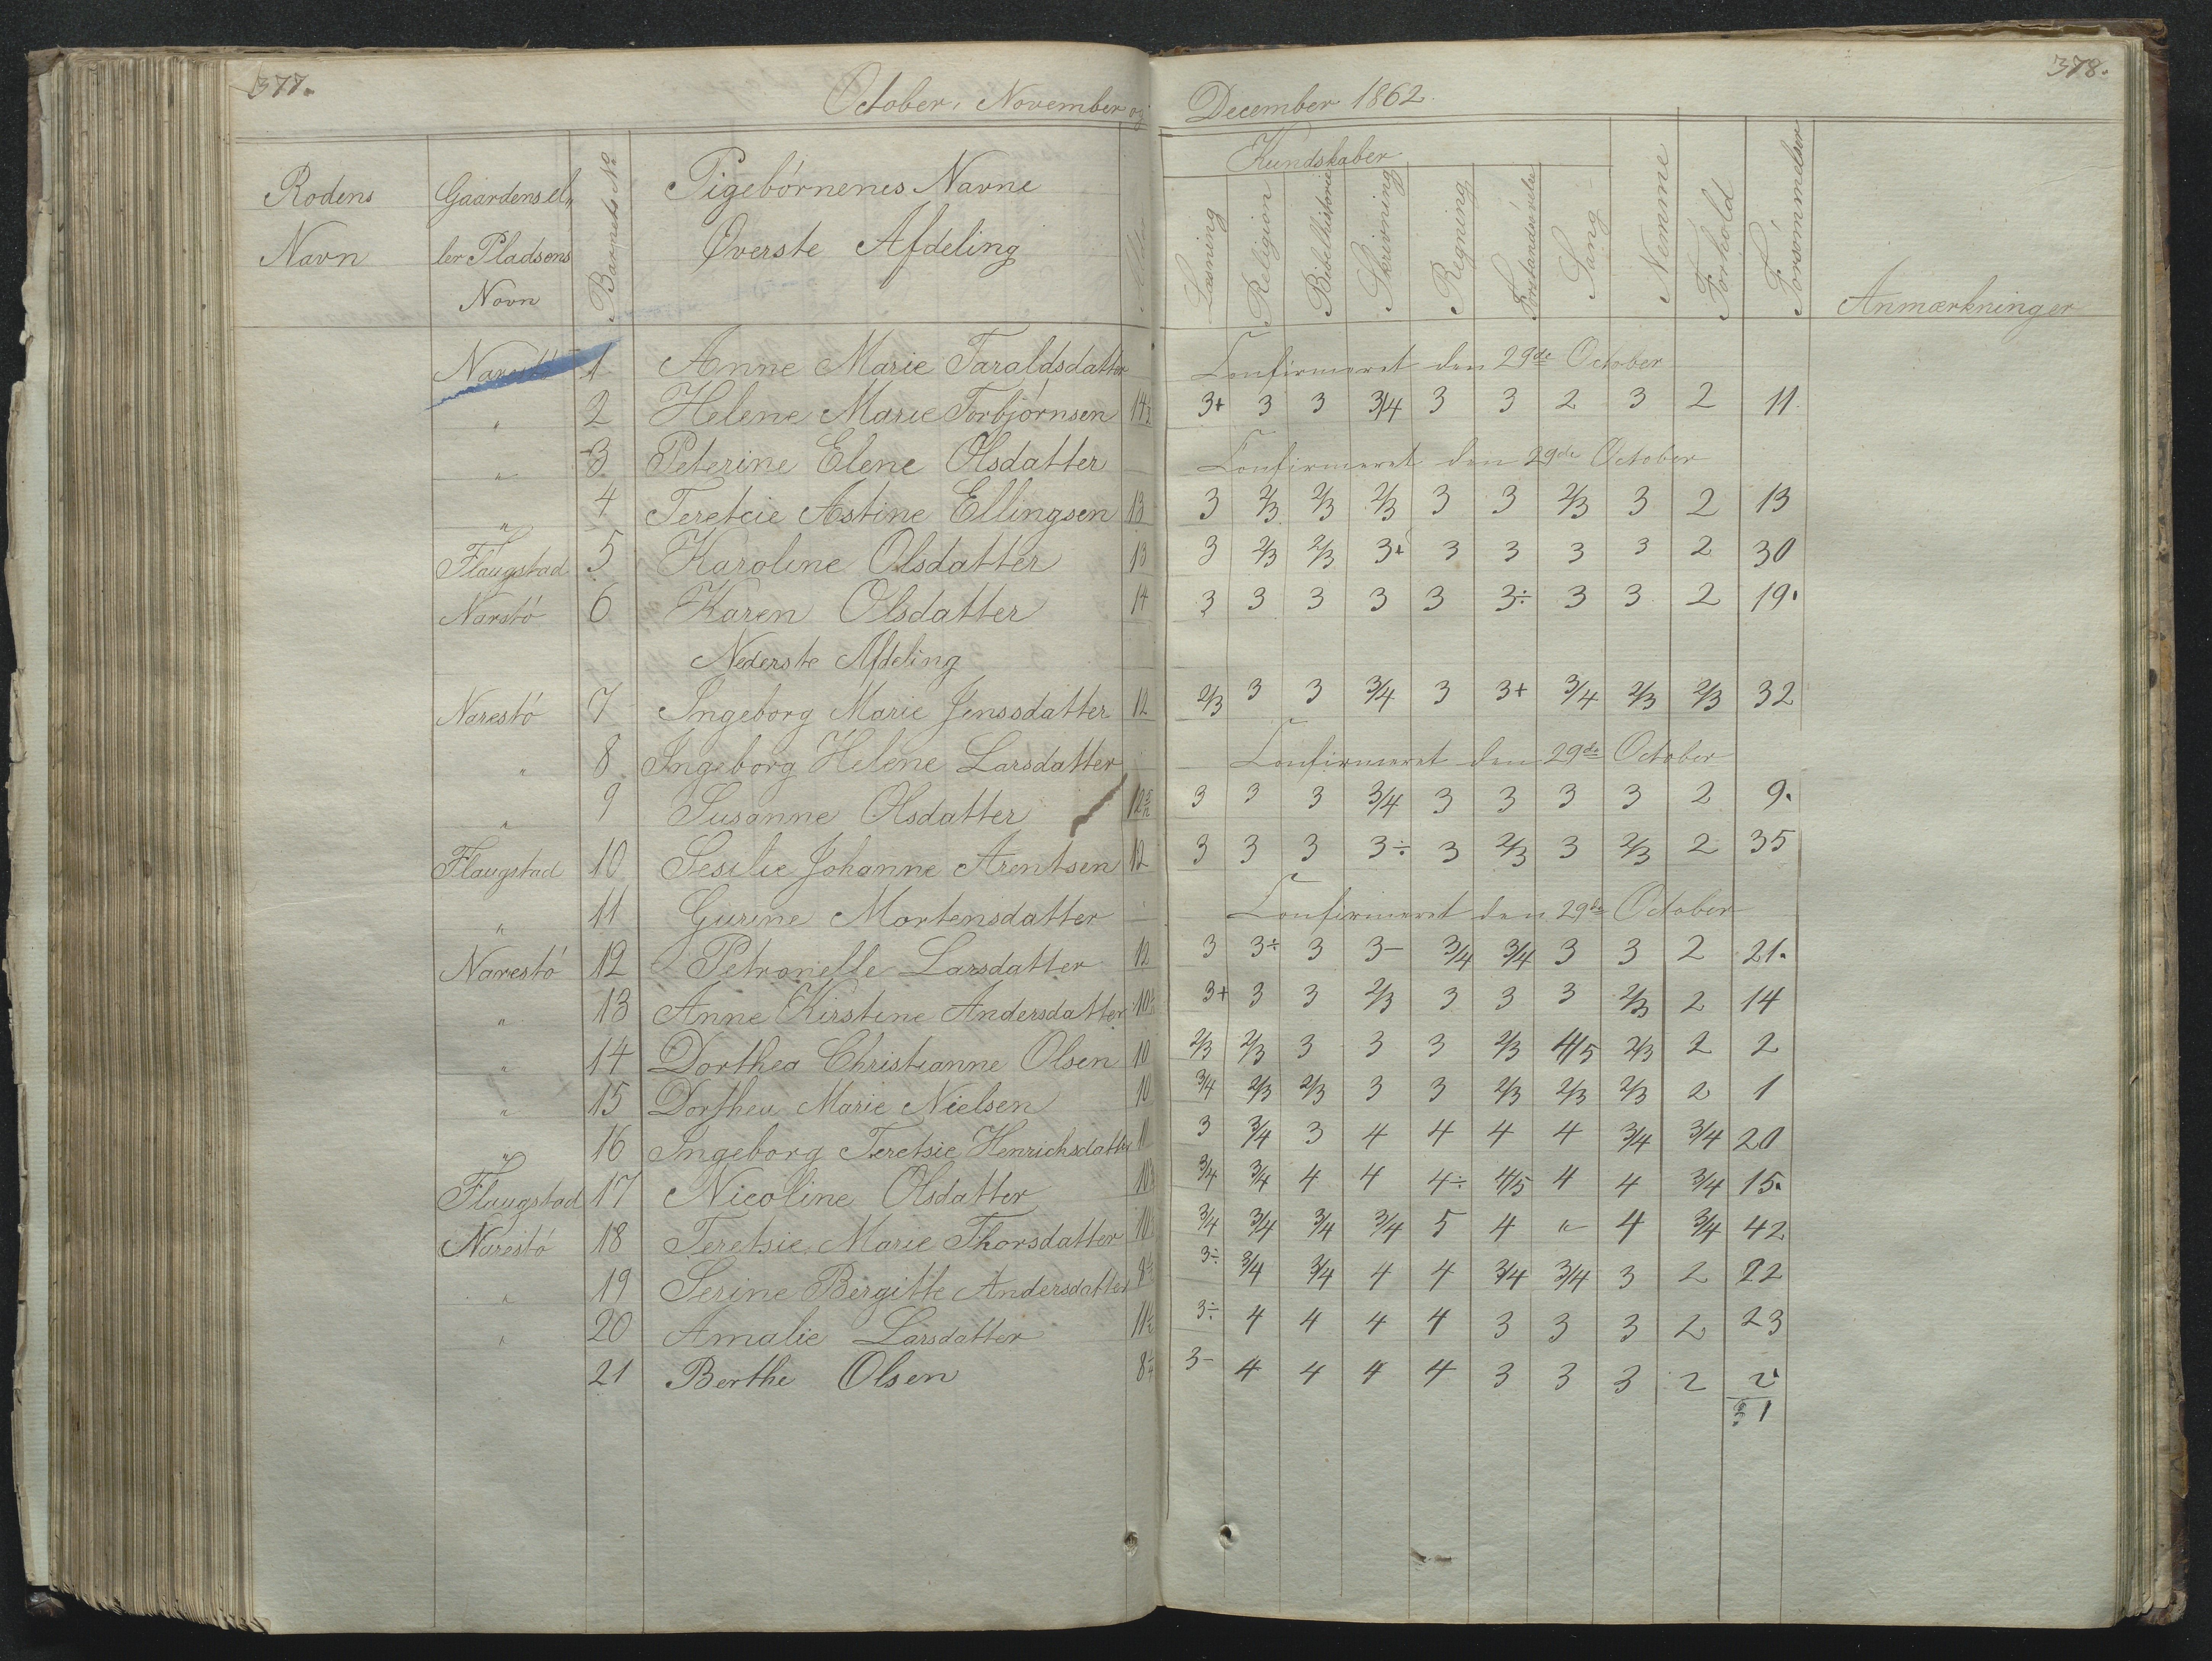 377.
378.
October, November og December 1862.
Rodens Navn
Gaardens el„ ler Pladsens Navn
Barnets No
Pigebørnenes Navne
Øverste Afdeling
Alder
Kundskaber
Læsning
Religion
Bibelhistorie
Skrivning
Regning
Forstandsøvelse
Sang
Nemme
Forhold
Forsømmelser
Anmærkninger
Narestö 1 Anne Marie Taraldsdatter Confirmeret den 29de October
" 2 Helene Marie Torbjørnsen 14½ 3+ 3 3 3/4 3 3 2 3 2 11.
" 3 Peterine Elene Olsdatter Confirmeret den 29de October
" 4 Teretcie Astine Ellingsen 13 3 2/3 2/3 2/3 3 3 2/3 3 2 13
Flaugstad 5 Karoline Olsdatter 13 3 2/3 2/3 3+ 3 3 3 3 2 30
Narstö 6 Karen Olsdatter 14 3 3 3 3 3 3÷ 3 3 2 19.
Nederste Afdeling
Narestö 7 Ingeborg Marie Jenssdatter 12 2/3 3 3 3/4 3 3+ 3/4 2/3 2/3 32
" 8 Ingeborg Helene Larsdatter Confirmeret den 29de October
" 9 Susanne Olsdatter 12 3 3 3 3/4 3 3 3 3 2 9.
Flaugstad 10 Sesilie Johanne Arentsen 12 3 3 3 3÷ 3 2/3 3 2/3 2 35
" 11 Gurine Mortensdatter Confirmeret den 29de October
Narestö 12 Petronelle Larsdatter 12 3 3÷ 3 3- 3/4 3/4 3 3 2 21.
" 13 Anne Kirstine Andersdatter 10 3+ 3 3 2/3 3 3 3 2/3 2 14
" 14 Dorthea Christianne Olsen 10 2/3 2/3 3 3 3 2/3 4/5 2/3 2 2
" 15 Dorthea Marie Nielsen 10 3/4 2/3 2/3 3 3 2/3 2/3 2/3 2 1
" 16 Ingeborg Teretsie Henrichsdatter 11 3 3/4 3 4 4 4 4 3/4 3/4 20
Flaugstad 17 Nicoline Olsdatter 10 3/4 3/4 4 4 4÷ 4/5 4 4 3/4 15.
Narestö 18 Teretsie Marie Thorsdatter 10 3/4 3/4 3/4 3/4 5 4 " 4 3/4 42
" 19 Serine Bergitte Andersdatter 3÷ 3/4 3/4 4 4 3/4 3/4 3 2 22
" 20 Amalie Larsdatter 11½ 3÷ 4 4 4 4 3 3 3 2 23
21 Berthe Olsen 8 3- 4 4 4 4 3 3 3 2 2